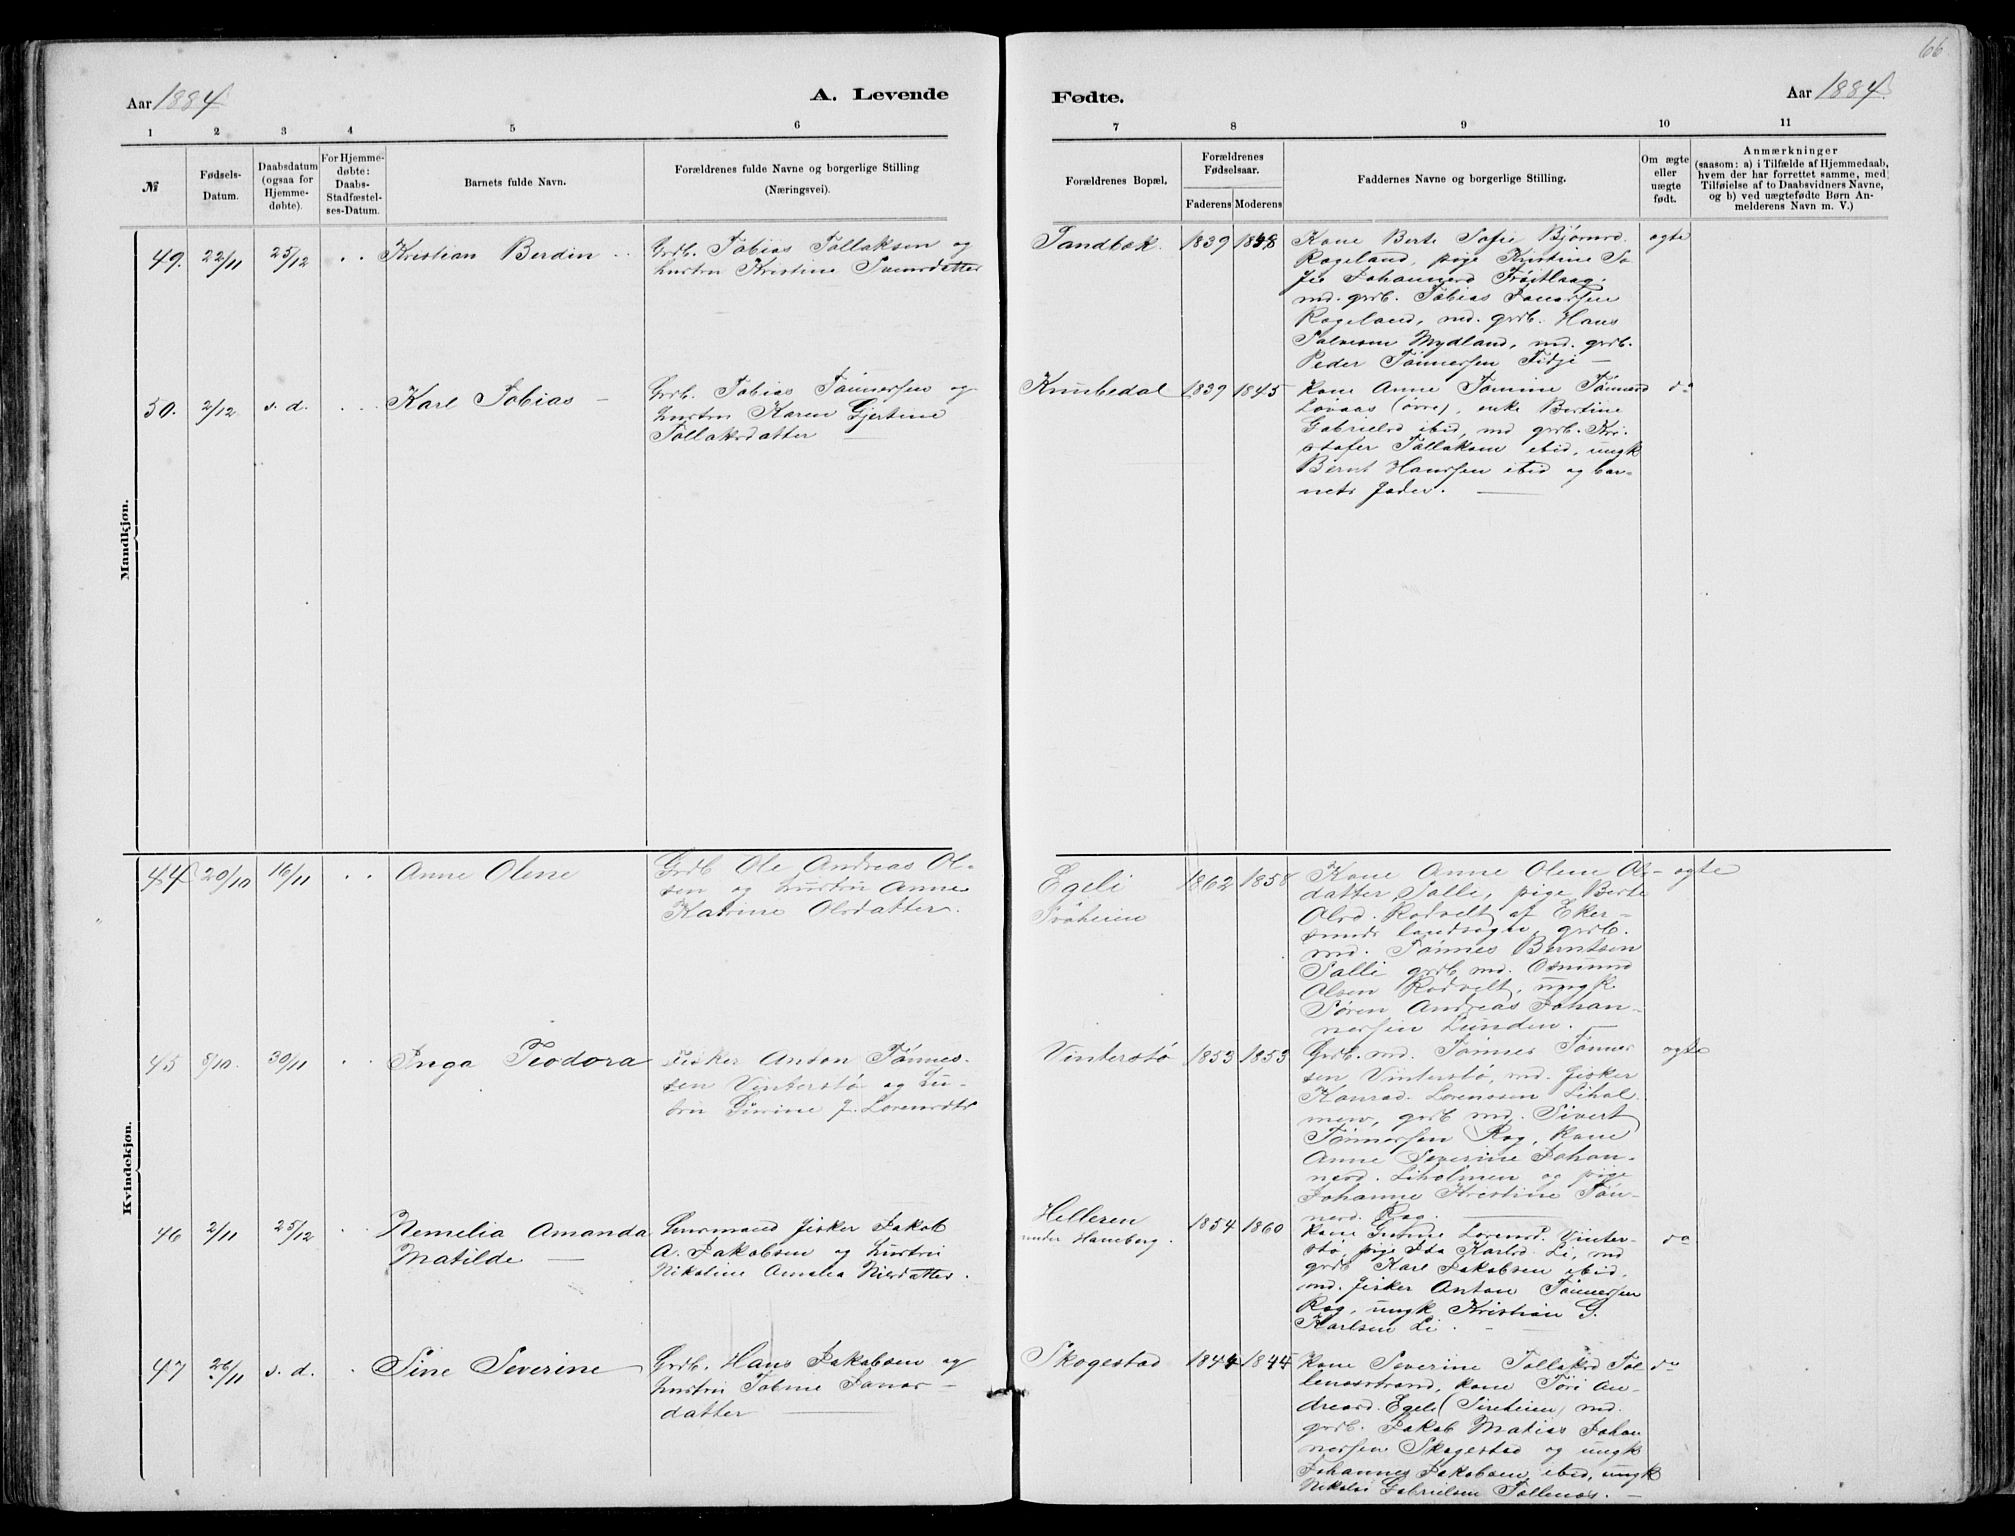 66
Aar 1884
A. Levende
Fødte.
Aar 1884.
1 2 3 4 5 6 7 8 9 10 11
№
Fødsels-
Datum.
Daabsdatum
(ogsaa for
Hjemme-
døbte).
For Hjemme-
døbte:
Daabs-
Stadfæstel-
ses-Datum.
Barnets fulde Navn.
Forældrenes fulde Navne og borgerlige Stilling
(Næringsvei).
Forældrenes Bopæl.
Forældrenes
Fødselsaar.
Faderens Moderens
Faddernes Navne og borgerlige Stilling.
Om ægte
eller
uægte
født.
Anmærkninger
(saasom: a) i Tilfælde af Hjemmedaab,
hvem der har forrettet samme, med
Tilføielse af to Daabsvidners Navne,
og b) ved uægtefødte Børn An-
melderens Navn m. V.)
Mandkjøn.
49. 22/11 25/12 Kristian Berdin
Grdb. Tobias Tollaksen og
hustru Kristine Svensdatter
Sandbæk. 1839 1848
Kone Berte Sofie Bjørnsd.
Rægeland, pige Kristine So
fie Johannesd
md. grdb. Tobias Jonassen
Rægeland, md. grdb. Hans
Salvesen Mydland, md. grdb.
Peder Tønnessen Fidje —
ægte
50. 2/12 s. d. Karl Tobias —
Grdb. Tobias Tønnessen og
hustru Karen Gjertine
Tollaksdatter
Knubedal 1839 1845
Kone Anne Tomine Tønnesd
Lovaas (øvre), enke Bertine
Gabrielsd ibid, md grdb. Kri-
stofer Tollaksen ibid, ungk
Bernt Hanssen ibid og bar-
nets fader.
do
Kvindekjøn.
44 20/10 16/11 Anne Olene
Grdb Ole Andreas Ol-
sen og hustru Anne
Katrine Olsdatter.
Egeli
1862 1858
Kone Anne Olene Ols-
datter Salli, pige Berte
Olsd. Rodvelt af Eker-
sunds landsogn, grdb.
md. Tønnes Berntsen
Salli grdb md. Osmund
Olsen Rodvelt, ungk.
Søren Andreas Johan-
nessen Lunden. —
ægte
45 8/10. 30/11 Inga Teodora
Fisker Anton Tønnes-
sen Vinterstø og hu-
stru Gurine J. Lorensdtr
Vinterstø 1853 1853
Grdb. md. Tønnes Tønnes
sen Vinterstø, md. fisker
Konrad Lorensen Lihol
men, grdb md. Sivert
Tønnessen Rag, kone
Anne Severine Johan-
nesd. Liholmen og pige
Johanne Kristine Tøn-
nesd. Rag.
ægte
46 2/11 25/12 Nemelia Amanda
Matilde —
Husmand fisker Jakob
A. Jakobsen og hustru
Nikoline Amalia Nilsdatter.
Helleren
under Hamberg.
1854 1860
Kone Gurine Lorensd. Vinter-
stø, pige Ida Karlsd. Li, md
grdb Karl Jakobsen ibid,
md. fisker Anton Tønnessen
Rag, ungk Kristian G.
Karlsen Li.
do
47 26/11 s. d. Sine Severine
Grdb. Hans Jakobsen og
hustru Tobine Jonas-
datter
Skogestad 1844 1844
Kone Severine Tollaksd Tol-
lenesstrand, kone Tori An-
dreasd. Egeli (Sireheien) md.
grdb. Jakob Matias Johan
nessen Skogestad og ungk
Johannes Jakobsen ibid, ungk
Nikolai Gabrielsen Tollenæs. —
do